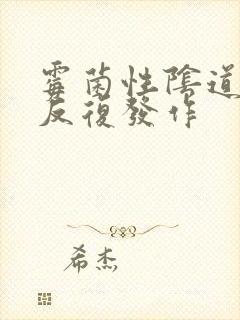 霉菌性陰道
反復發作
希杰